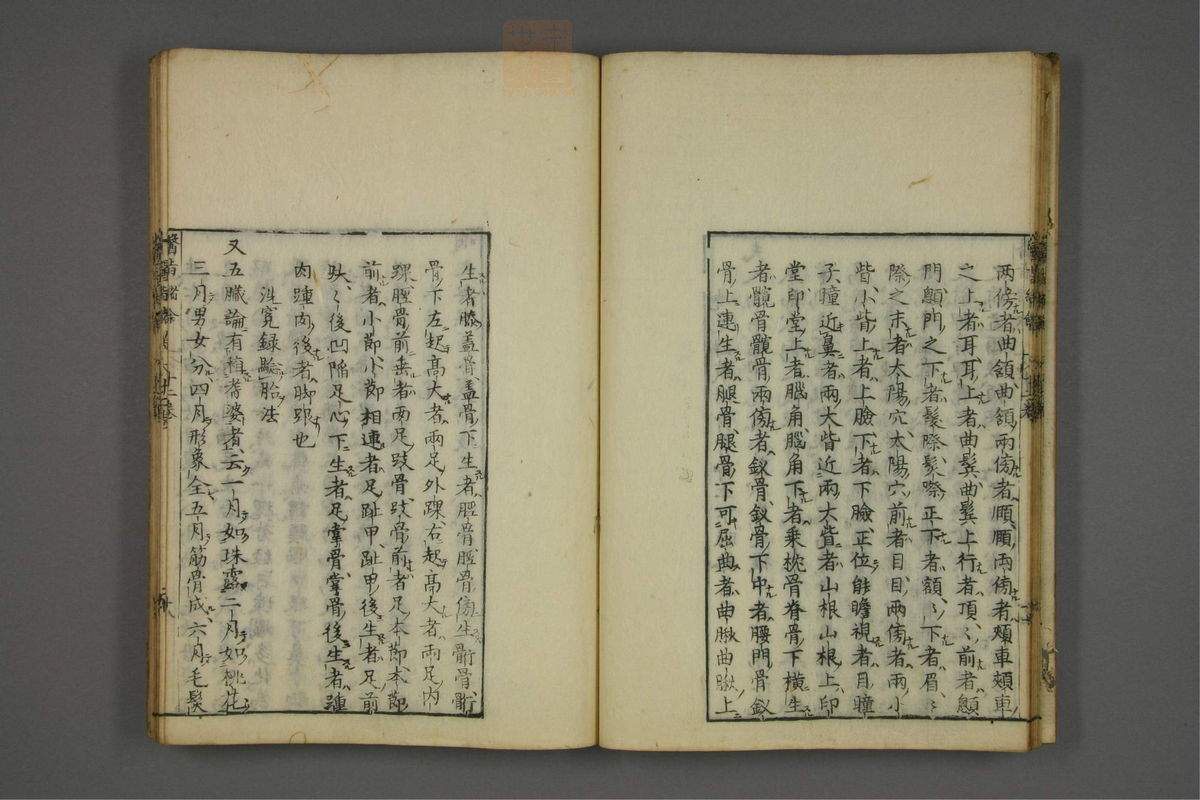 両傍者曲頷、曲頷両傍者頤、頤両傍者頬車、頬車
之上者耳、耳上者曲鬂、曲鬂上行者頂、〻前者顖
門、顖門之下者髪際、髪際正下者額、〻下者眉、〻
際之末者太陽穴、太陽穴前者目、目両傍者両小
眥、小眥上者上瞼、下者下瞼、正位能瞻視者目瞳
子、瞳近鼻者両大眥、近両大眥者山根、山根上印
堂、印堂上者脳角、脳角下者乗枕骨、脊骨下横生
者髖骨、髖骨両傍者釵骨、釵骨下中者腰門骨、釵
骨上連生者腿骨、腿骨下可屈曲者曲䐐、曲䐐上
生者膝蓋骨、蓋骨下生者脛骨、脛骨傍生䯒骨、䯒
骨下左起高大者両足外踝、右起高大者両足内
踝、脛骨前垂者両足跂骨、跂骨前者足本節、本節
前者小節、小節相連者足趾甲、趾甲後生者足前
趺、〻後凹陥足心、下生者足掌骨、掌骨後生者踵
肉、踵肉後者脚跟也
洗寃録驗胎法
又五臓論有稙耆婆者、云一月如珠露、二月如桃花
三月男女分、四月形象全、五月筋骨成、六月毛髪